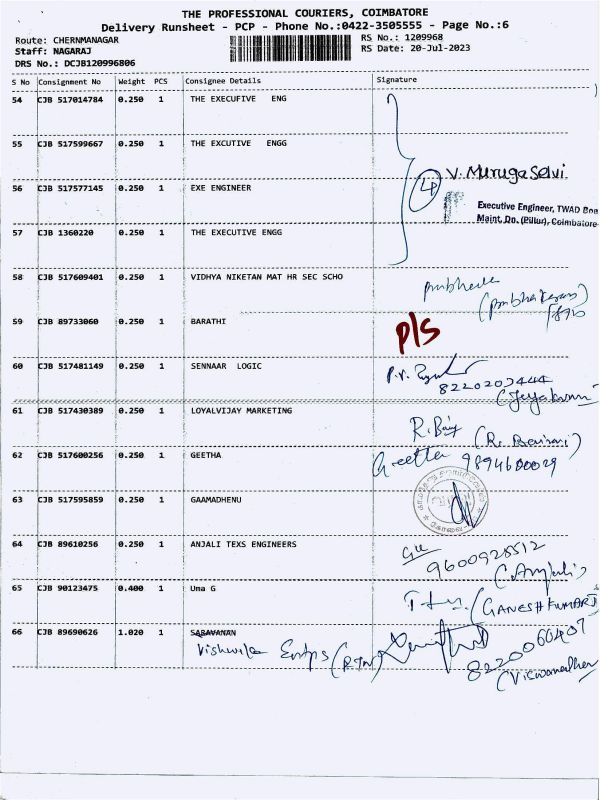 THE PROFESSIONAL COURIERS, COIMBATORE
Delivery Runsheet - PCP - Phone No.:0422-3505555 - Page No.:6
Route: CHERNMANAGAR RS No.: 1209968
Staff: NAGARAJ RS Date: 20-Jul-2023
DRS No.: DCJB120996806
S No Consignment No Weight PCS Consignee Details Signature
54 CJB 517014784 0.250 1 THE EXECUFIVE ENG
55 CJB 517599667 0.250 1 THE EXCUTIVE ENGG
V. MurugaSelvi
56 CJB 517577145 0.250 1 EXE ENGINEER
Executive Engineer, TWAD Boa
Maint. Dn. (Pillur), Coimbatore-
57 CJB 1360220 0.250 1 THE EXECUTIVE ENGG
58 CJB 517609401 0.250 1 VIDHYA NIKETAN MAT HR SEC SCHO
59 CJB 89733060 0.250 1 BARATHI P/S
60 CJB 517481149 0.250 1 SENNAAR LOGIC
8220203444
61 CJB 517430389 0.250 1 LOYALVIJAY MARKETING
62 CJB 517600256 0.250 1 GEETHA Geetha 9894600029
63 CJB 517595859 0.250 1 GAAMADHENU
64 CJB 89610256 0.250 1 ANJALI TEXS ENGINEERS
9600928512
(Anjali)
65 CJB 90123475 0.400 1 Uma G (GANESH KUMAR)
66 CJB 89690626 1.020 1 SARAVANAN
8220060407